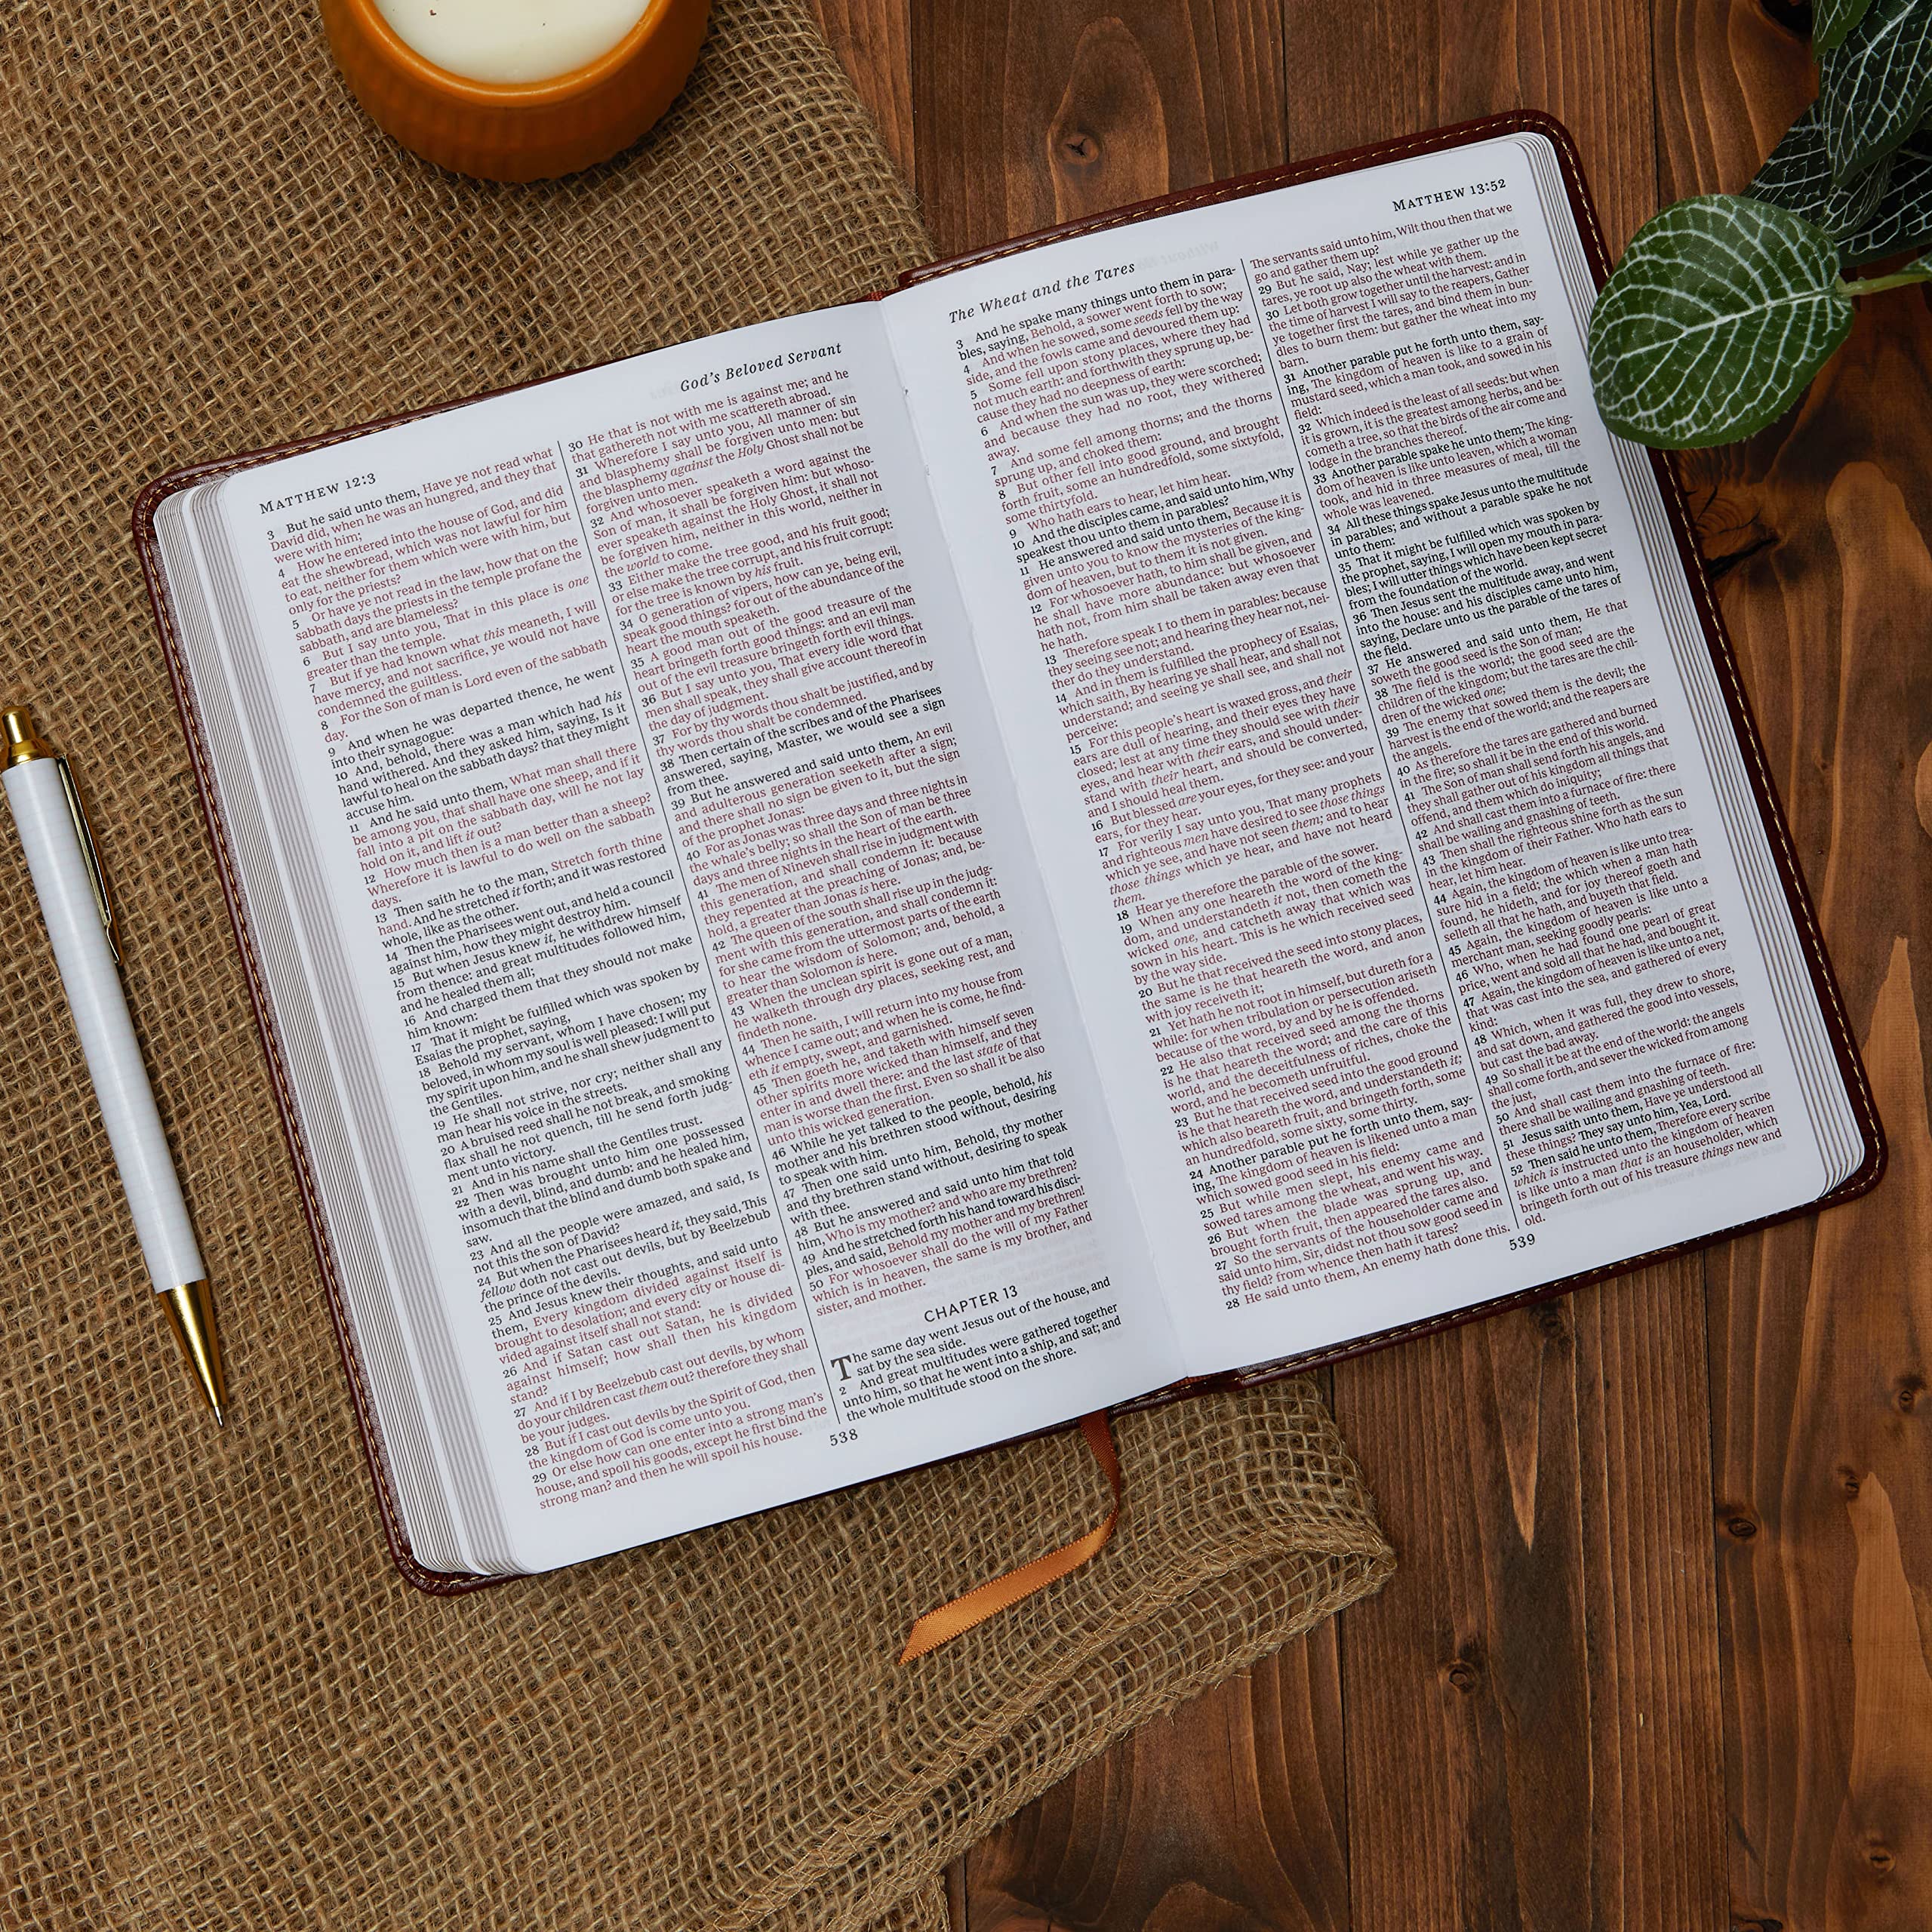 MATTHEW 12:3
God's Beloved Servant
3 But he said unto them, Have ye not read what
David did, when he was an hungred, and they that
were with him;
4 How he entered into the house of God, and did
eat the shewbread, which was not lawful for him
to eat, neither for them which were with him, but
only for the priests?
5 Or have ye not read in the law, how that on the
sabbath days the priests in the temple profane the
sabbath, and are blameless?
6 But I say unto you, That in this place is one
greater than the temple.
7 But if ye had known what this meaneth, I will
have mercy, and not sacrifice, ye would not have
condemned the guiltless.
8 For the Son of man is Lord even of the sabbath
day.
9 And when he was departed thence, he went
into their synagogue:
10 And, behold, there was a man which had his
hand withered. And they asked him, saying, Is it
lawful to heal on the sabbath days? that they might
accuse him.
11 And he said unto them, What man shall there
be among you, that shall have one sheep, and if it
fall into a pit on the sabbath day, will he not lay
hold on it, and lift it out?
12 How much then is a man better than a sheep?
Wherefore it is lawful to do well on the sabbath
days.
13 Then saith he to the man, Stretch forth thine
hand. And he stretched it forth; and it was restored
whole, like as the other.
14 Then the Pharisees went out, and held a council
against him, how they might destroy him.
15 But when Jesus knew it, he withdrew himself
from thence: and great multitudes followed him,
and he healed them all;
16 And charged them that they should not make
him known:
17 That it might be fulfilled which was spoken by
Esaias the prophet, saying,
18 Behold my servant, whom I have chosen; my
beloved, in whom my soul is well pleased: I will put
my spirit upon him, and he shall shew judgment to
the Gentiles.
19 He shall not strive, nor cry; neither shall any
man hear his voice in the streets.
20 A bruised reed shall he not break, and smoking
flax shall he not quench, till he send forth judg-
ment unto victory.
21 And in his name shall the Gentiles trust.
22 Then was brought unto him one possessed
with a devil, blind, and dumb: and he healed him,
insomuch that the blind and dumb both spake and
saw.
23 And all the people were amazed, and said, Is
not this the son of David?
24 But when the Pharisees heard it, they said, This
fellow doth not cast out devils, but by Beelzebub
the prince of the devils.
25 And Jesus knew their thoughts, and said unto
them, Every kingdom divided against itself is
brought to desolation; and every city or house di-
vided against itself shall not stand:
26 And if Satan cast out Satan, he is divided
against himself; how shall then his kingdom
stand?
27 And if I by Beelzebub cast out devils, by whom
do your children cast them out? therefore they shall
be your judges.
28 But if I cast out devils by the Spirit of God, then
the kingdom of God is come unto you.
29 Or else how can one enter into a strong man's
house, and spoil his goods, except he first bind the
strong man? and then he will spoil his house.
30 He that is not with me is against me; and he
that gathereth not with me scattereth abroad.
31 Wherefore I say unto you, All manner of sin
and blasphemy shall be forgiven unto men: but
the blasphemy against the Holy Ghost shall not be
forgiven unto men.
32 And whosoever speaketh a word against the
Son of man, it shall be forgiven him: but whoso-
ever speaketh against the Holy Ghost, it shall not
be forgiven him, neither in this world, neither in
the world to come.
33 Either make the tree good, and his fruit good;
or else make the tree corrupt, and his fruit corrupt:
for the tree is known by his fruit.
34 O generation of vipers, how can ye, being evil,
speak good things? for out of the abundance of the
heart the mouth speaketh.
35 A good man out of the good treasure of the
heart bringeth forth good things: and an evil man
out of the evil treasure bringeth forth evil things.
36 But I say unto you, That every idle word that
men shall speak, they shall give account thereof in
the day of judgment.
37 For by thy words thou shalt be justified, and by
thy words thou shalt be condemned.
38 Then certain of the scribes and of the Pharisees
answered, saying, Master, we would see a sign
from thee.
39 But he answered and said unto them, An evil
and adulterous generation seeketh after a sign;
and there shall no sign be given to it, but the sign
of the prophet Jonas:
40 For as Jonas was three days and three nights in
the whale's belly; so shall the Son of man be three
days and three nights in the heart of the earth.
41 The men of Nineveh shall rise in judgment with
this generation, and shall condemn it: because
they repented at the preaching of Jonas; and, be-
hold, a greater than Jonas is here.
42 The queen of the south shall rise up in the judg-
ment with this generation, and shall condemn it:
for she came from the uttermost parts of the earth
to hear the wisdom of Solomon; and, behold, a
greater than Solomon is here.
43 When the unclean spirit is gone out of a man,
he walketh through dry places, seeking rest, and
findeth none.
44 Then he saith, I will return into my house from
whence I came out; and when he is come, he find-
eth it empty, swept, and garnished.
45 Then goeth he, and taketh with himself seven
other spirits more wicked than himself, and they
enter in and dwell there: and the last state of that
man is worse than the first. Even so shall it be also
unto this wicked generation.
46 While he yet talked to the people, behold, his
mother and his brethren stood without, desiring
to speak with him.
47 Then one said unto him, Behold, thy mother
and thy brethren stand without, desiring to speak
with thee.
48 But he answered and said unto him that told
him, Who is my mother? and who are my brethren?
49 And he stretched forth his hand toward his disci-
ples, and said, Behold my mother and my brethren!
50 For whosoever shall do the will of my Father
which is in heaven, the same is my brother, and
sister, and mother.
CHAPTER 13
The same day went Jesus out of the house, and
sat by the sea side.
2 And great multitudes were gathered together
unto him, so that he went into a ship, and sat; and
the whole multitude stood on the shore.
538
The Wheat and the Tares
MATTHEW 13:52
3 And he spake many things unto them in para-
bles, saying, Behold, a sower went forth to sow;
4 And when he sowed, some seeds fell by the way
side, and the fowls came and devoured them up:
5 Some fell upon stony places, where they had
not much earth: and forthwith they sprung up, be-
cause they had no deepness of earth:
6 And when the sun was up, they were scorched;
and because they had no root, they withered
away.
7 And some fell among thorns; and the thorns
sprung up, and choked them:
8 But other fell into good ground, and brought
forth fruit, some an hundredfold, some sixtyfold,
some thirtyfold.
9 Who hath ears to hear, let him hear.
10 And the disciples came, and said unto him, Why
speakest thou unto them in parables?
11 He answered and said unto them, Because it is
given unto you to know the mysteries of the king-
dom of heaven, but to them it is not given.
12 For whosoever hath, to him shall be given, and
he shall have more abundance: but whosoever
hath not, from him shall be taken away even that
he hath.
13 Therefore speak I to them in parables: because
they seeing see not; and hearing they hear not, nei-
ther do they understand.
14 And in them is fulfilled the prophecy of Esaias,
which saith, By hearing ye shall hear, and shall not
understand; and seeing ye shall see, and shall not
perceive:
15 For this people's heart is waxed gross, and their
ears are dull of hearing, and their eyes they have
closed; lest at any time they should see with their
eyes, and hear with their ears, and should under-
stand with their heart, and should be converted,
and I should heal them.
16 But blessed are your eyes, for they see: and your
ears, for they hear.
17 For verily I say unto you, That many prophets
and righteous men have desired to see those things
which ye see, and have not seen them; and to hear
those things which ye hear, and have not heard
them.
18 Hear ye therefore the parable of the sower.
19 When any one heareth the word of the king-
dom, and understandeth it not, then cometh the
wicked one, and catcheth away that which was
sown in his heart. This is he which received seed
by the way side.
20 But he that received the seed into stony places,
the same is he that heareth the word, and anon
with joy receiveth it;
21 Yet hath he not root in himself, but dureth for a
while: for when tribulation or persecution ariseth
because of the word, by and by he is offended.
22 He also that received seed among the thorns
is he that heareth the word; and the care of this
world, and the deceitfulness of riches, choke the
word, and he becometh unfruitful.
23 But he that received seed into the good ground
is he that heareth the word, and understandeth it;
which also beareth fruit, and bringeth forth, some
an hundredfold, some sixty, some thirty.
24 Another parable put he forth unto them, say-
ing, The kingdom of heaven is likened unto a man
which sowed good seed in his field:
25 But while men slept, his enemy came and
sowed tares among the wheat, and went his way.
26 But when the blade was sprung up, and
brought forth fruit, then appeared the tares also.
27 So the servants of the householder came and
said unto him, Sir, didst not thou sow good seed in
thy field? from whence then hath it tares?
28 He said unto them, An enemy hath done this.
The servants said unto him, Wilt thou then that we
go and gather them up?
29 But he said, Nay; lest while ye gather up the
tares, ye root up also the wheat with them.
30 Let both grow together until the harvest: and in
the time of harvest I will say to the reapers, Gather
ye together first the tares, and bind them in bun-
dles to burn them: but gather the wheat into my
barn.
31 Another parable put he forth unto them, say-
ing, The kingdom of heaven is like to a grain of
mustard seed, which a man took, and sowed in his
field:
32 Which indeed is the least of all seeds: but when
it is grown, it is the greatest among herbs, and be-
cometh a tree, so that the birds of the air come and
lodge in the branches thereof.
33 Another parable spake he unto them; The king-
dom of heaven is like unto leaven, which a woman
took, and hid in three measures of meal, till the
whole was leavened.
34 All these things spake Jesus unto the multitude
in parables; and without a parable spake he not
unto them:
35 That it might be fulfilled which was spoken by
the prophet, saying, I will open my mouth in para-
bles; I will utter things which have been kept secret
from the foundation of the world.
36 Then Jesus sent the multitude away, and went
into the house: and his disciples came unto him,
saying, Declare unto us the parable of the tares of
the field.
37 He answered and said unto them, He that
soweth the good seed is the Son of man;
38 The field is the world; the good seed are the
children of the kingdom; but the tares are the chil-
dren of the wicked one;
39 The enemy that sowed them is the devil; the
harvest is the end of the world; and the reapers are
the angels.
40 As therefore the tares are gathered and burned
in the fire; so shall it be in the end of this world.
41 The Son of man shall send forth his angels, and
they shall gather out of his kingdom all things that
offend, and them which do iniquity;
42 And shall cast them into a furnace of fire: there
shall be wailing and gnashing of teeth.
43 Then shall the righteous shine forth as the sun
in the kingdom of their Father. Who hath ears to
hear, let him hear.
44 Again, the kingdom of heaven is like unto trea-
sure hid in a field; the which when a man hath
found, he hideth, and for joy thereof goeth and
selleth all that he hath, and buyeth that field.
45 Again, the kingdom of heaven is like unto a
merchant man, seeking goodly pearls:
46 Who, when he had found one pearl of great
price, went and sold all that he had, and bought it.
47 Again, the kingdom of heaven is like unto a net,
that was cast into the sea, and gathered of every
kind:
48 Which, when it was full, they drew to shore,
and sat down, and gathered the good into vessels,
but cast the bad away.
49 So shall it be at the end of the world: the angels
shall come forth, and sever the wicked from among
the just,
50 And shall cast them into the furnace of fire:
there shall be wailing and gnashing of teeth.
51 Jesus saith unto them, Have ye understood all
these things? They say unto him, Yea, Lord.
52 Then said he unto them, Therefore every scribe
which is instructed unto the kingdom of heaven
is like unto a man that is an householder, which
bringeth forth out of his treasure things new and
old.
539